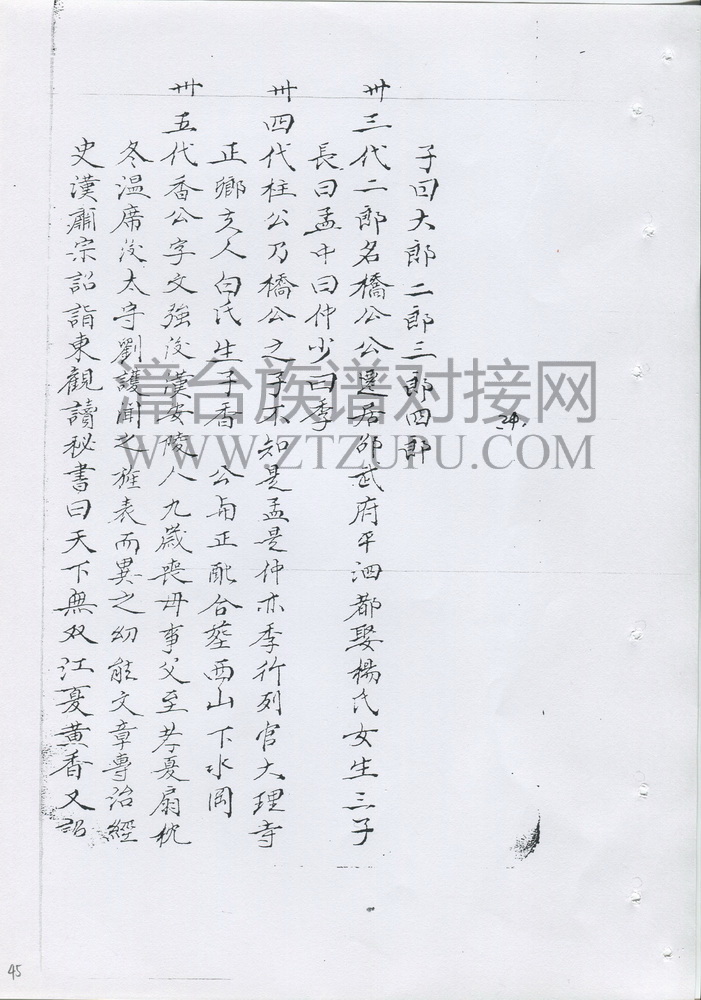 子曰大郎二郎三郎四郎
卅三代二郎名橋公公遷居邵武府平洒都娶楊氏女生三子
長曰孟中曰仲少曰季
卅四代柱公乃橋公之子不知是孟是仲亦季行列官大理寺
正鄉亥人白氏生子香 公与正配合塟西山下水岡
卅五代香公字文強後漢安陵人九歲喪母事父至孝夏扇枕
冬溫席後太守劉護聞之旌表而異之幼能文章專治經
史漢肅宗詔詣東觀讀秘書曰天下無双江夏黃香又詔
24.
漳台族谱对接网
WWW.ZTZUPU.COM
45